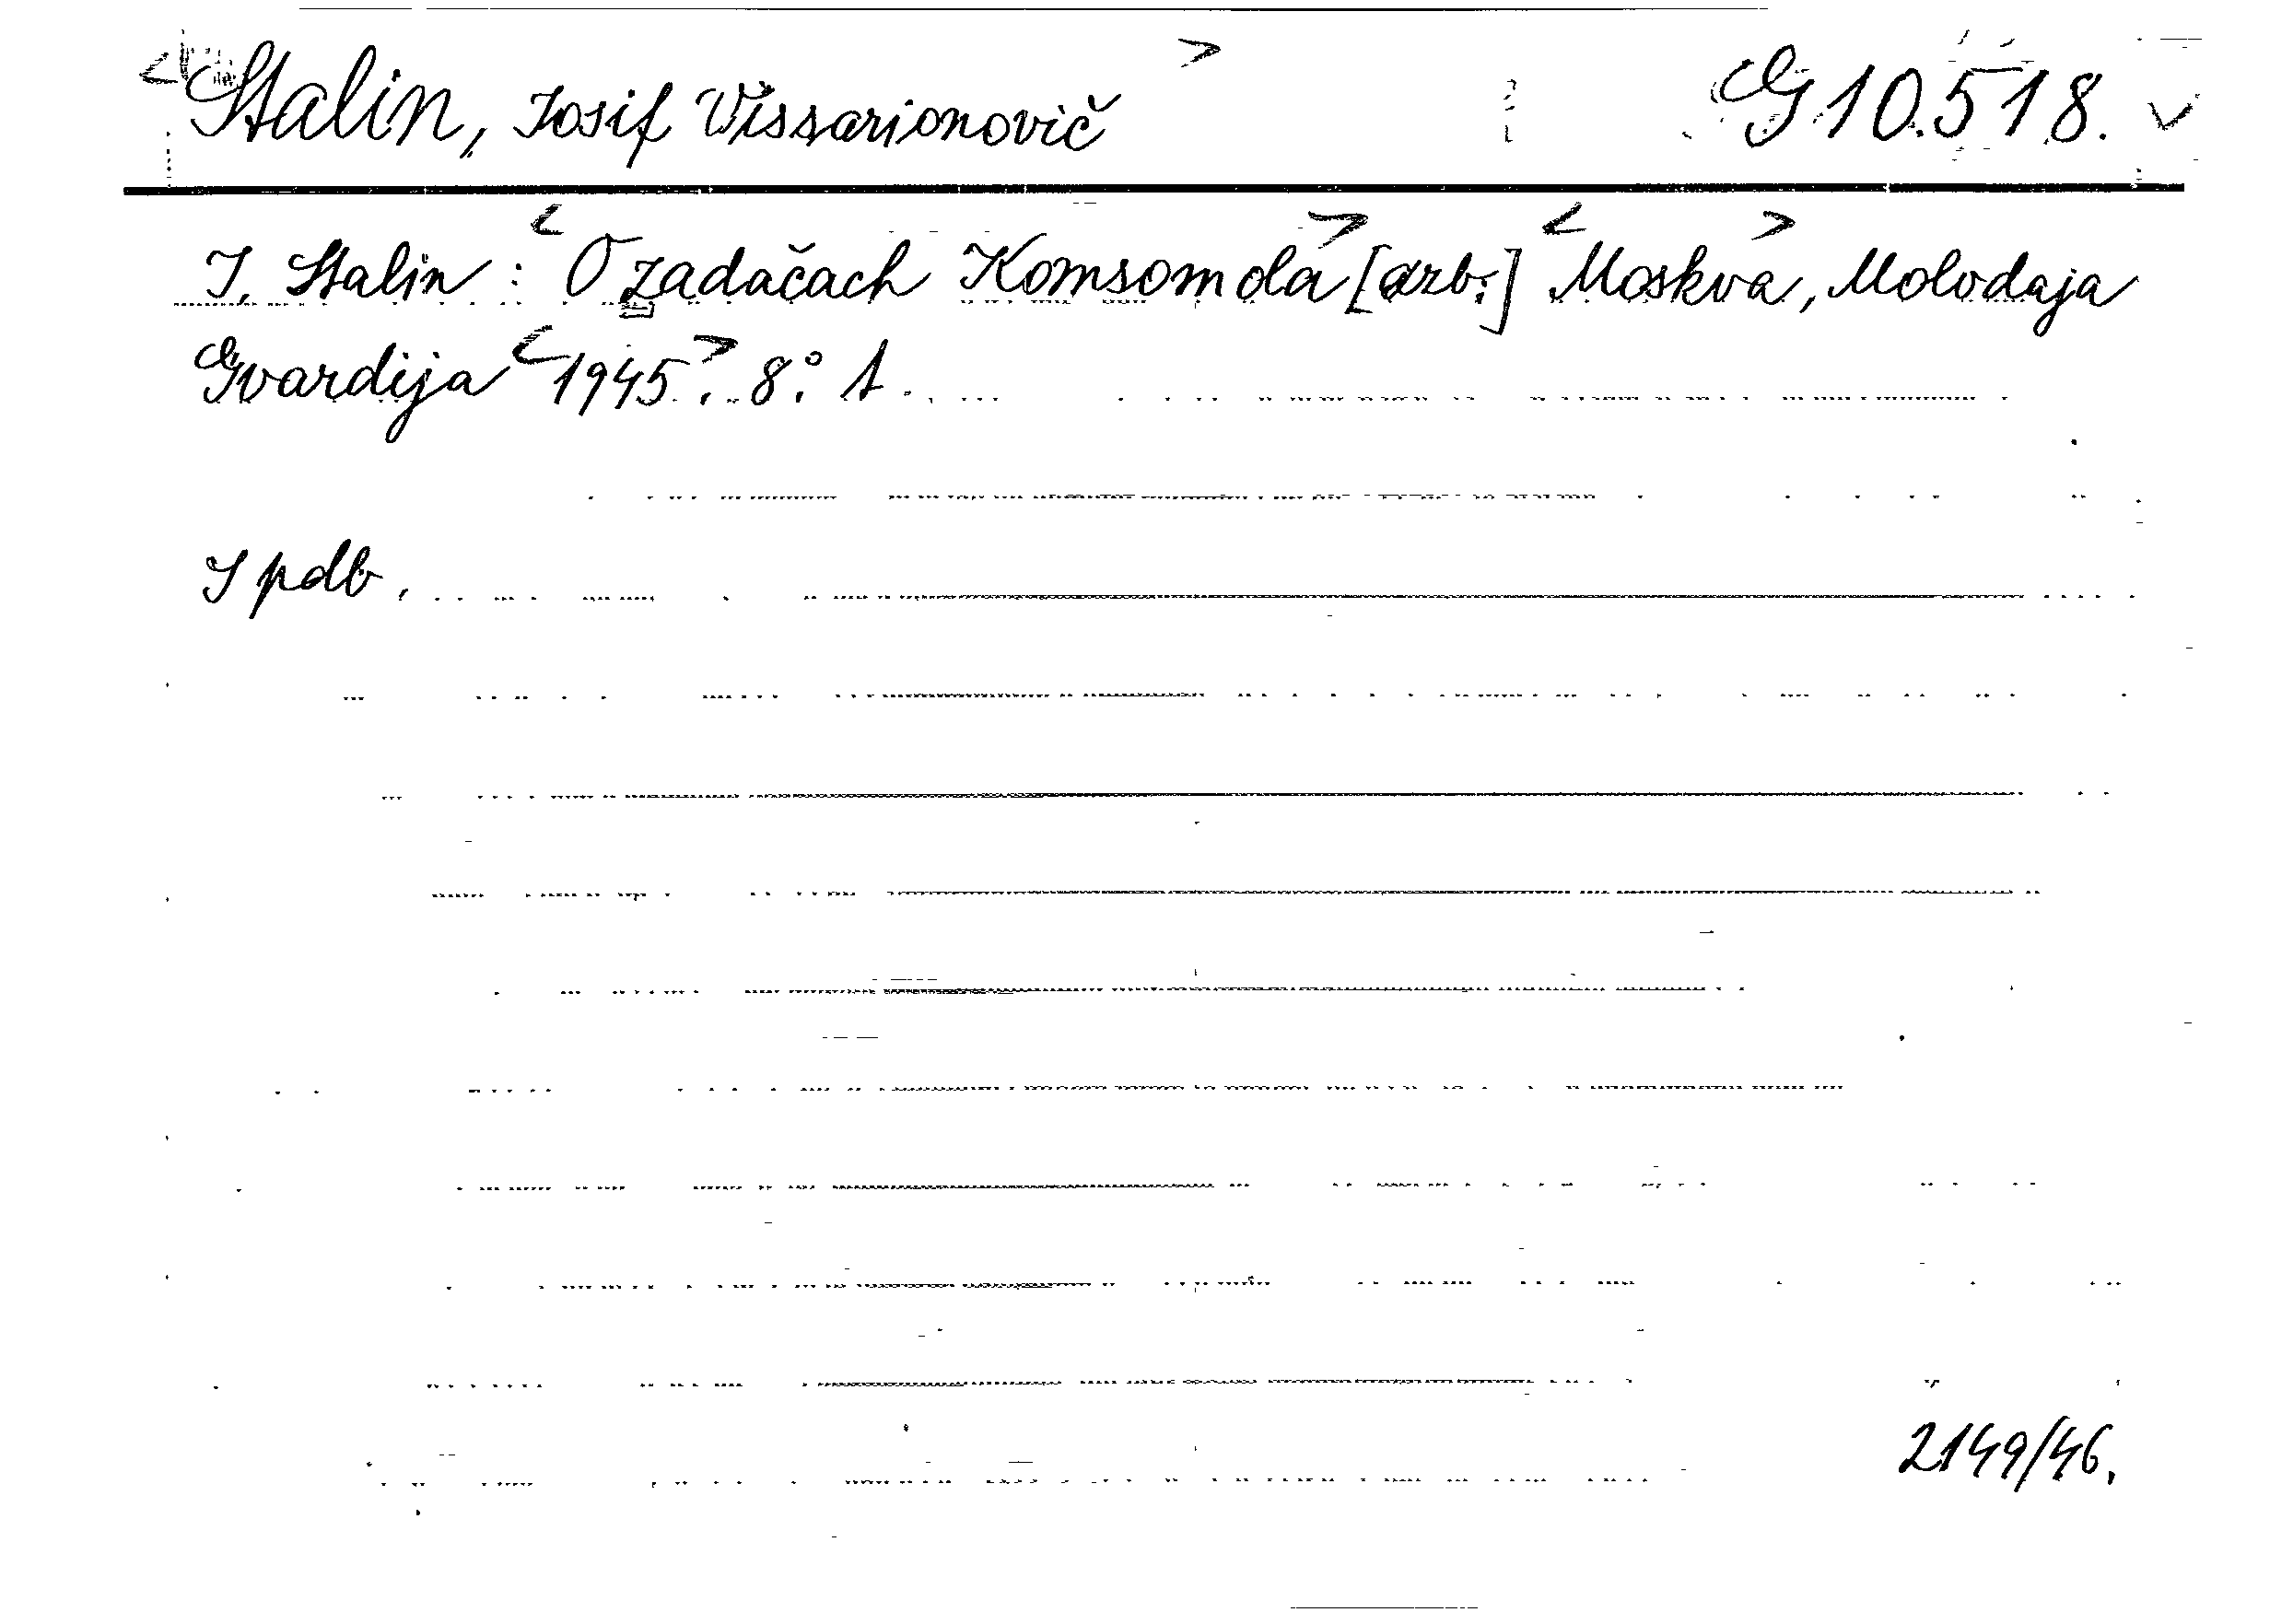 <Stalin, Iosif Vissarionovič> G 10.518. ✓
I. Stalin: <O zadačach Komsomola> [azb.] <Moskva>, Molodaja
Gvardija <1945>. 8° 1.
I pdb.
2149/46.